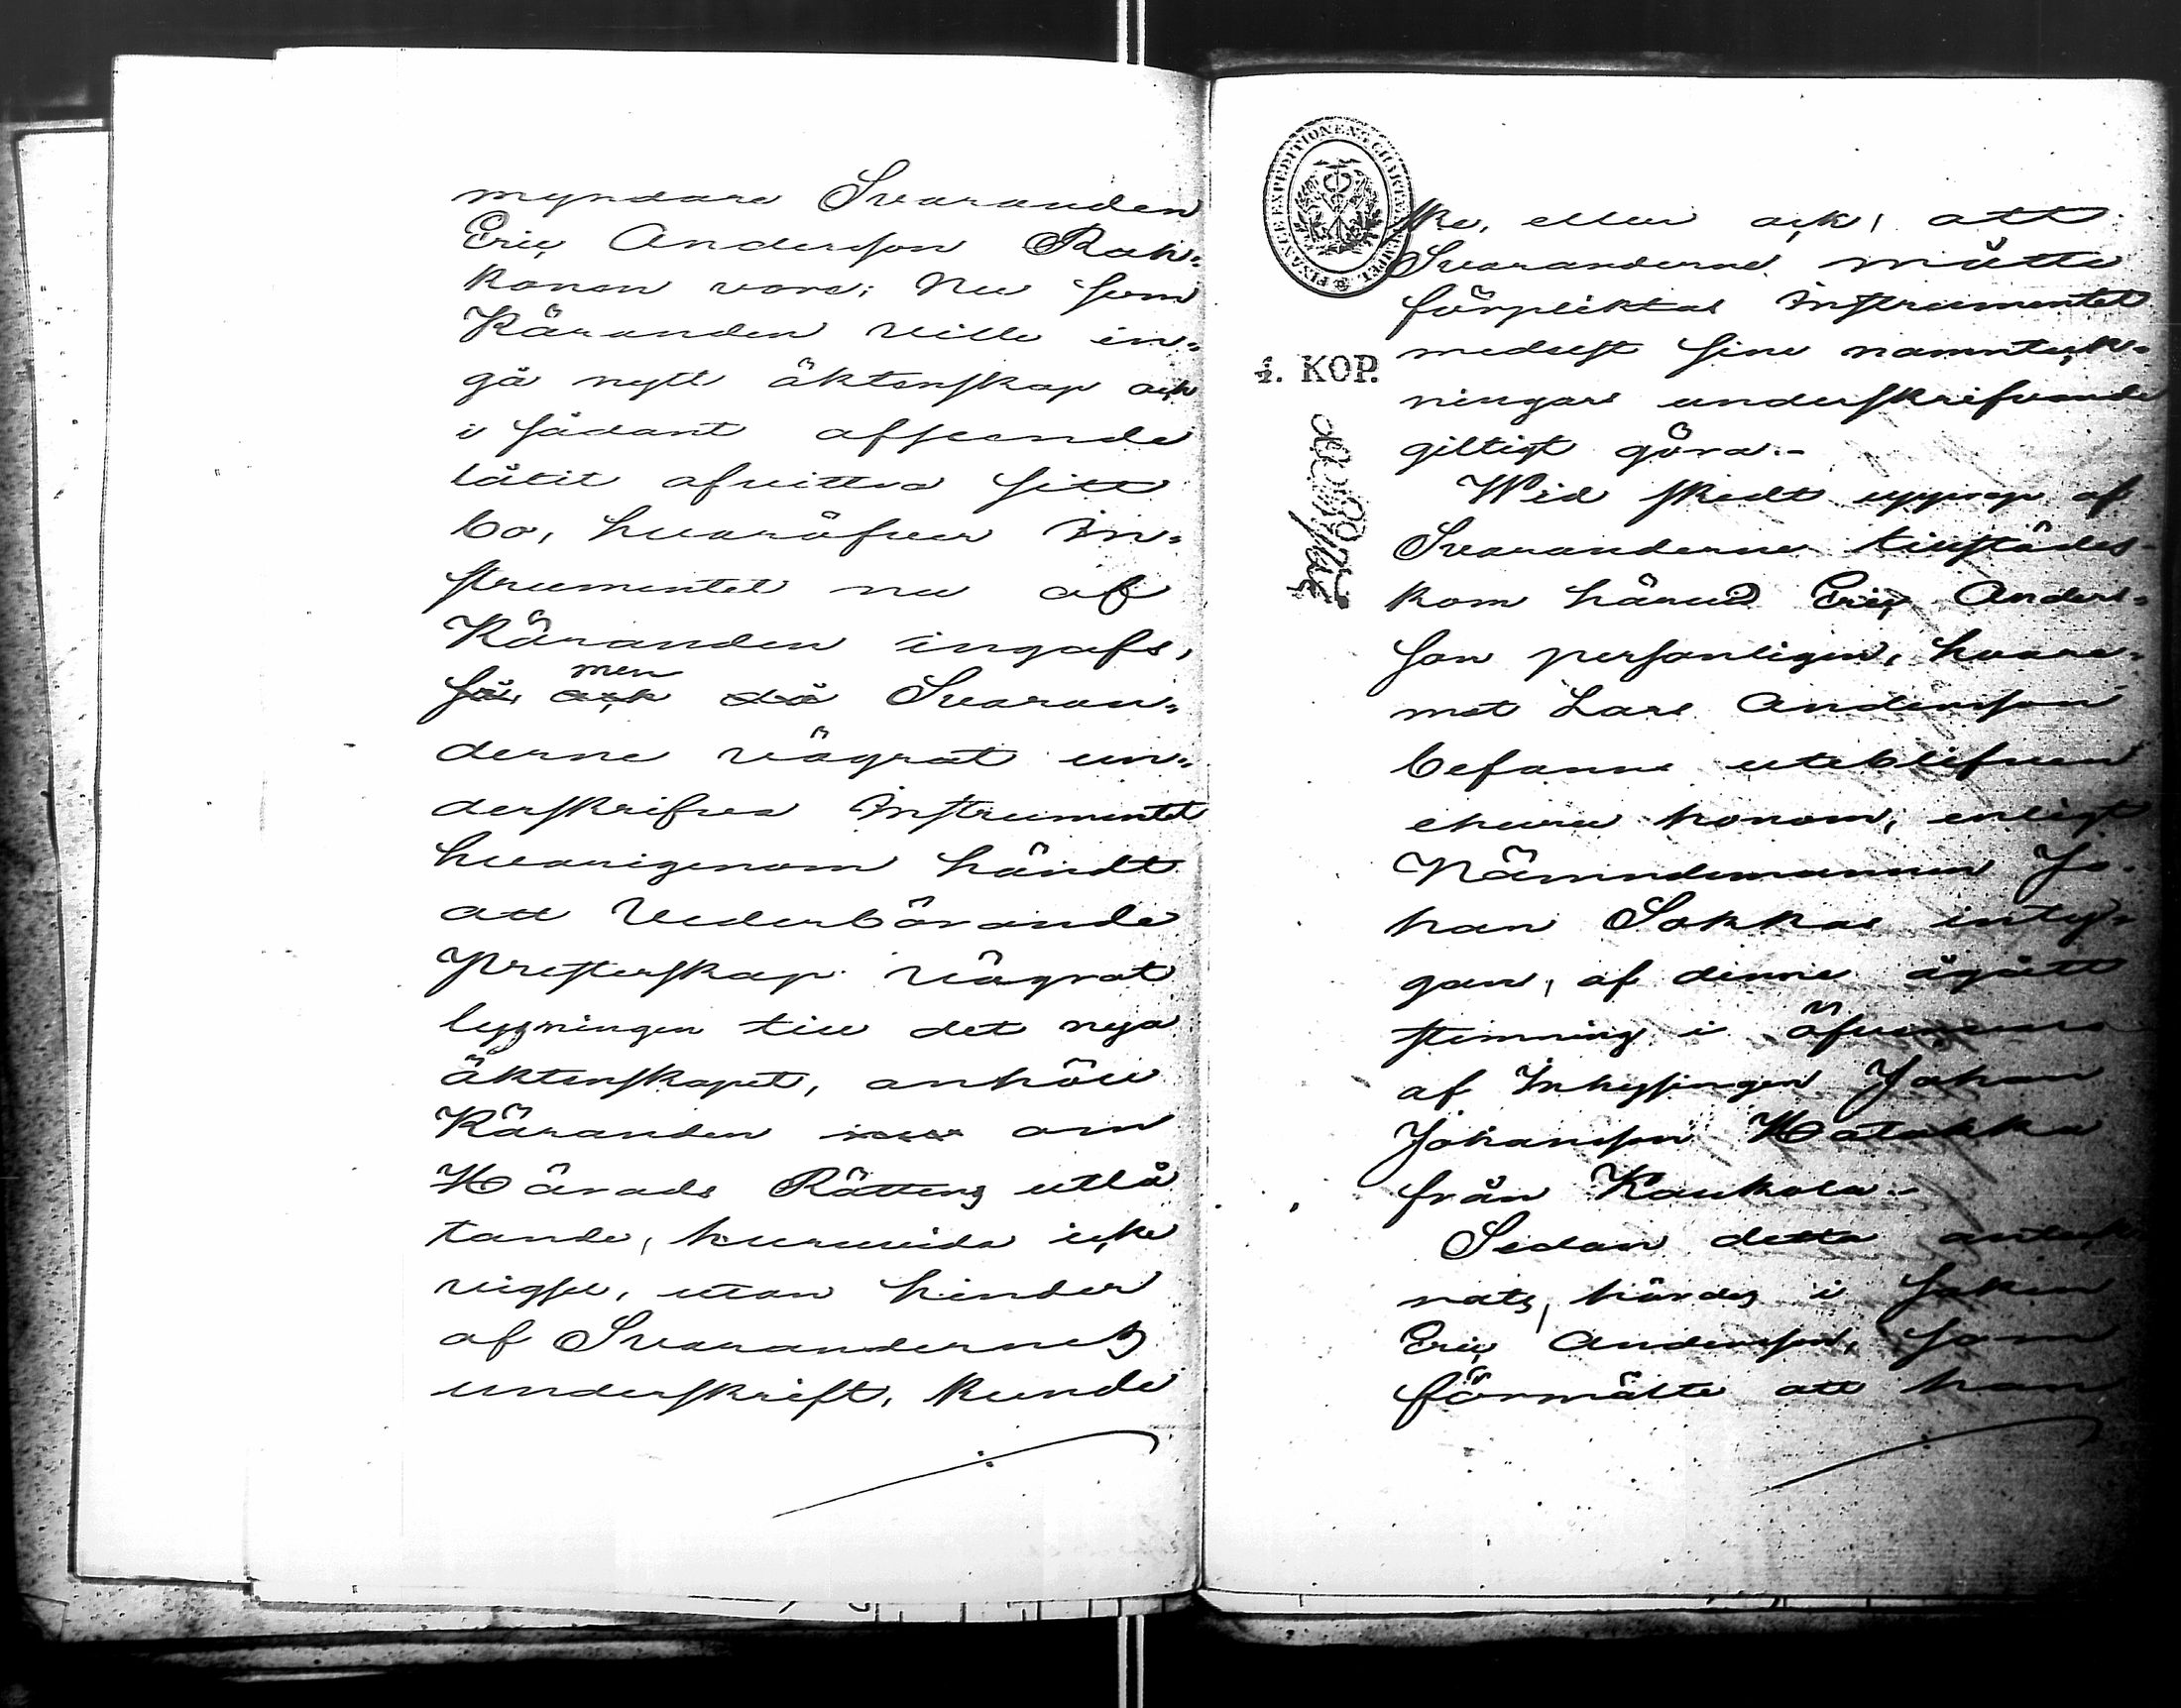 myndare Svaranden
Eric Andersson Rah-
konen vore; Nu som
Käranden ville in-
gå nytt äktenskap och
i sådant afseende
låtit afvittra sitt
bo, hvaröfver In-
strumentet nu af
Käranden ingafs,
men
så, och då Svaran-
derne vägrat un-
derskrifva Instrumentet
hvarigenom händt
att Vederbörande
Presterskap vägrat
lysningen till det nya
äktenskapet, anhöll
Käranden om
Härads Rättens utlå
tande, huruvida icke
vigsel, utan hinder
af Svarandernes
underskrift, kunde
FINANCE EXPEDITIONENS CHARTÆ STEMPEL
ske, eller ock, att
Svaranderne måtte
förpliktas Instrumentet
medelst sine namnteck-
ningars underskrifvande
giltigt göra.-
1. KOP.
Wid skedt upprop af
Svaranderne tillstädes-
kom härvid Eric Anders-
son personligen, hvare-
mot Lars Andersson
befanns utebliven
ehuru honom, enligt
Nämndemannen Jo-
han Sokkas inty-
gan, af denne ågått
stemning i öfvervaro
af Inhysingen Johan
Johansson Hatakka
från Kaukola.-
Sedan detta anteck
nats, hördes i saken
Eric Andersson, som
förmälte att han